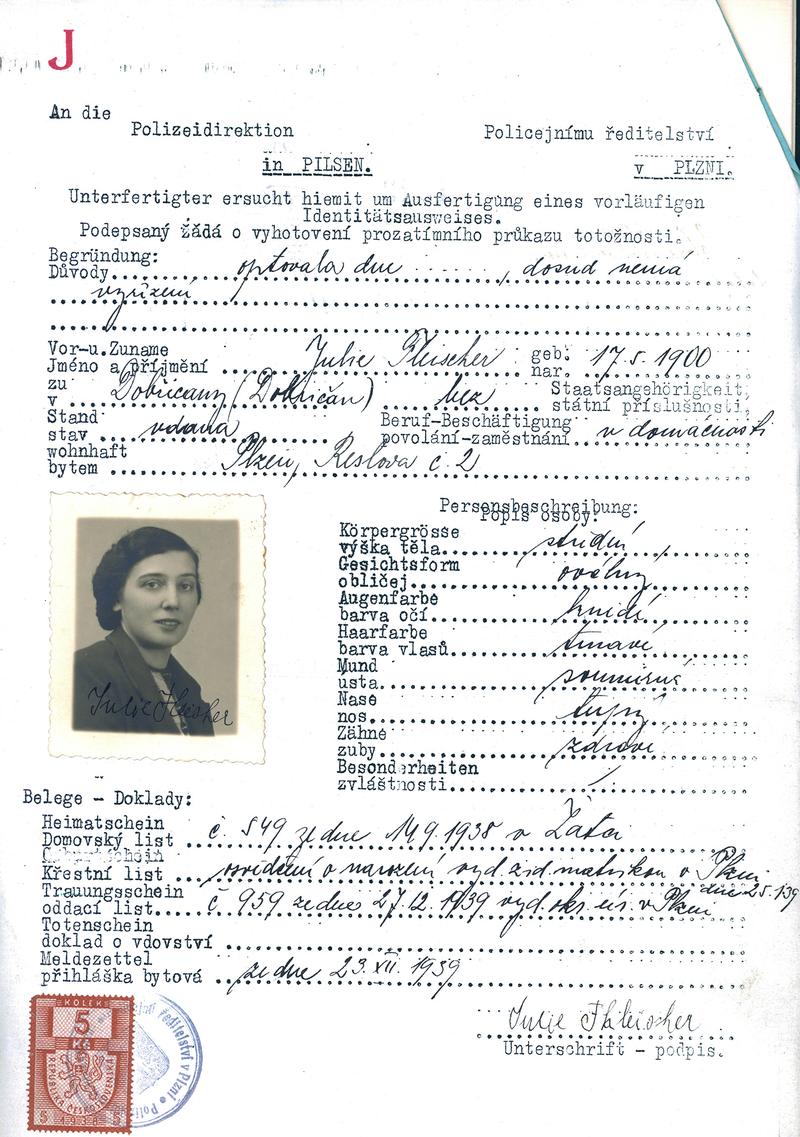 J
An die
Polizeidirektion Policejnímu ředitelství
in PILSEN. v PLZNI.
Unterfertigter ersucht hiemit um Ausfertigung eines vorläufigen
Identitätsausweises.
Podepsaný žádá o vyhotovení prozatímního průkazu totožnosti.
Begründung:
Důvody optovala dne ......, dosud nemá
vyřízení
Vor-u.Zuname geb.
Jméno a příjmění Julie Fleischer nar. 17.5.1900
zu Staatsangehörigkeit,
v Dobřičany (Dobřičan) bez státní příslušnosti,
Stand Beruf-Beschäftigung
stav vdaná povolání-zaměstnání v domácnosti
wohnhaft
bytem Plzeň, Reslova č. 2
Personsbeschreibung:
Popis osoby:
Körpergrösse
výška těla střední
Gesichtsform
obličej oválný
Augenfarbe
barva očí hnědé
Haarfarbe
barva vlasů tmavé
Mund
ústa souměrná
Nase
nos tupý
Zähne
zuby zdravé
Besonderheiten
zvláštnosti
Julie Fleischer
Belege - Doklady:
Heimatschein
Domovský list č. 549 ze dne 14.9.1938 v Žatci
Křestní list osvědčení o narození vyd. žid. matrikou v Plzni
Trauungsschein
oddací list č. 959 ze dne 27.12.1939 vyd. okr. úř. v Plzni
Totenschein
doklad o vdovství
Meldezettel
přihláška bytová ze dne 23.XII.1939
Julie Fleischer
Unterschrift - podpis.
KOLEK
5
Kč
REPUBLIKA ČESKOSLOVENSKÁ
ředitelství v Plzni